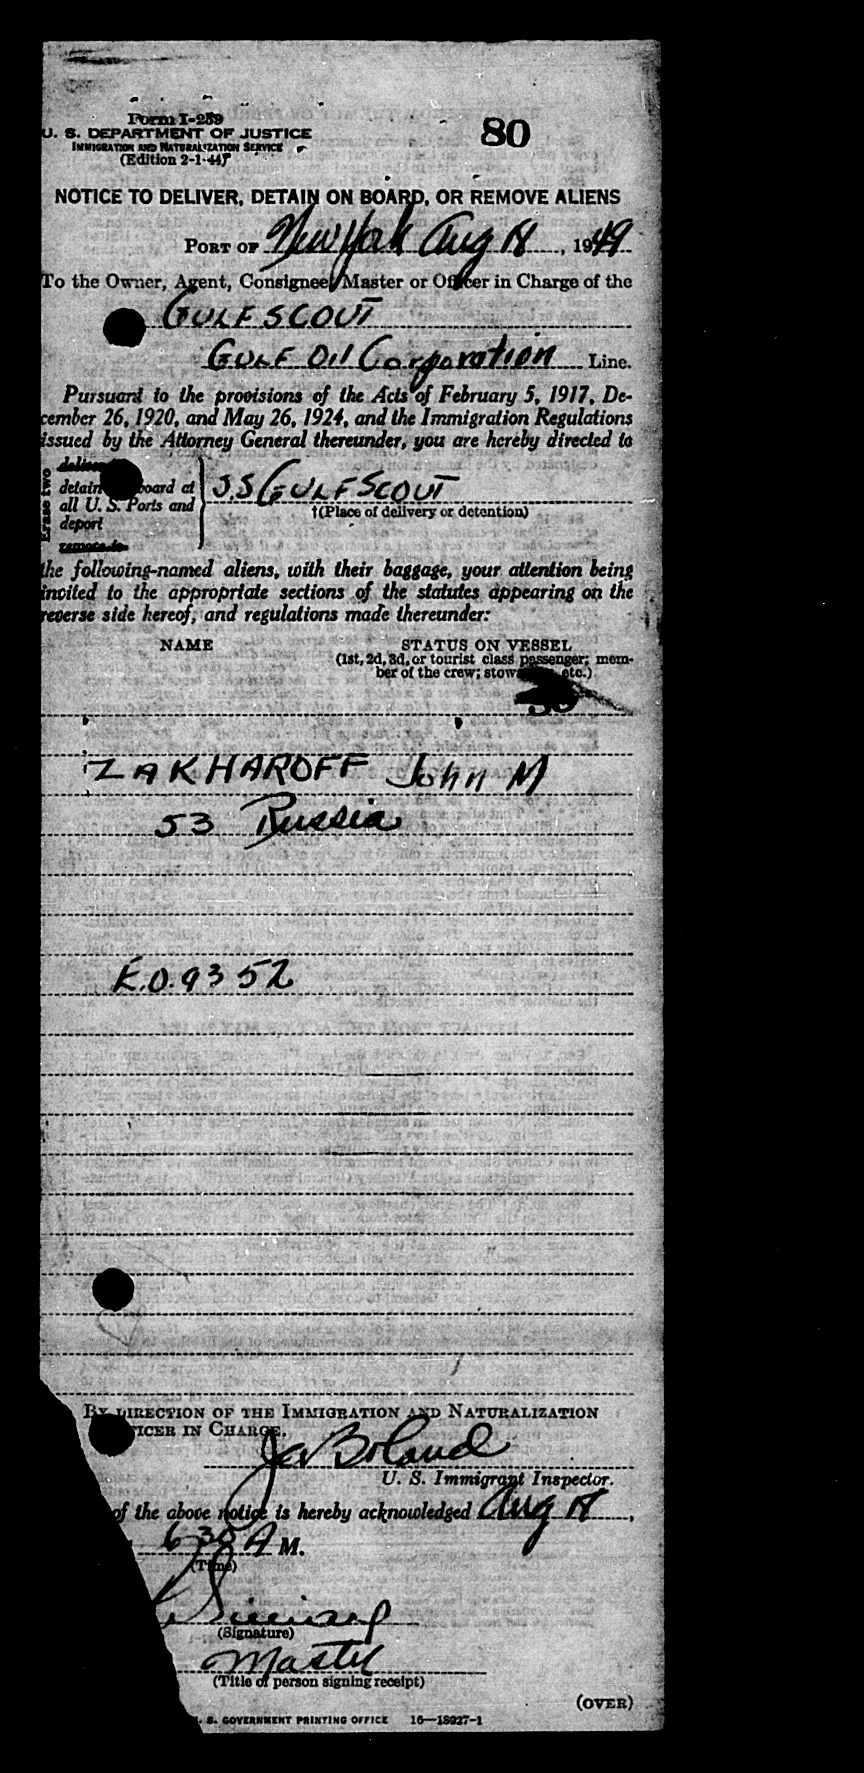 Form I-259
U. S. DEPARTMENT OF JUSTICE
IMMIGRATION AND NATURALIZATION SERVICE
(Edition 2-1-44)
80
NOTICE TO DELIVER, DETAIN ON BOARD, OR REMOVE ALIENS
PORT OF New York Aug 18, 1949
To the Owner, Agent, Consignee, Master or Officer in Charge of the
GULF SCOUT
GULF OIL Corporation Line.
Pursuant to the provisions of the Acts of February 5, 1917, De-
cember 26, 1920, and May 26, 1924, and the Immigration Regulations
issued by the Attorney General thereunder, you are hereby directed to
Erase two
deliver
detain board at
all U. S. Ports and
deport
remove to
S.S GULF SCOUT
†(Place of delivery or detention)
the following-named aliens, with their baggage, your attention being
invited to the appropriate sections of the statutes appearing on the
reverse side hereof, and regulations made thereunder:
NAME STATUS ON VESSEL
(1st, 2d, 3d, or tourist class passenger; mem-
ber of the crew; stow etc.)
ZAKHAROFF John M
53 Russia
E.O. 9352
BY DIRECTION OF THE IMMIGRATION AND NATURALIZATION
ICER IN CHARGE.
Boland
U. S. Immigrant Inspector.
of the above notice is hereby acknowledged Aug 18,
6 30 A M.
(Time)
(Signature)
Master
(Title of person signing receipt)
(OVER)
U. S. GOVERNMENT PRINTING OFFICE 16—18027-1